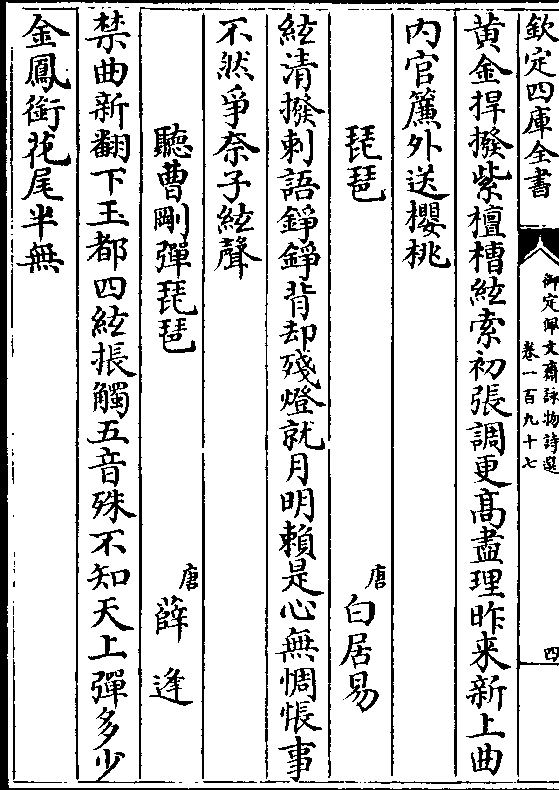 欽定四庫全書
御定佩文齋詠物詩選
卷一百九十七
四
黃金捍撥紫檀槽絃索初張調更髙盡理昨来新上曲
内官簾外送櫻桃
琵琶
唐
白居易
絃清撥刺語錚錚背却殘燈就月明賴是心無惆悵事
不然爭奈子絃聲
聽曹剛彈琵琶
唐
薛逢
禁曲新翻下玉都四絃掁觸五音殊不知天上彈多少
金鳳銜花尾半無